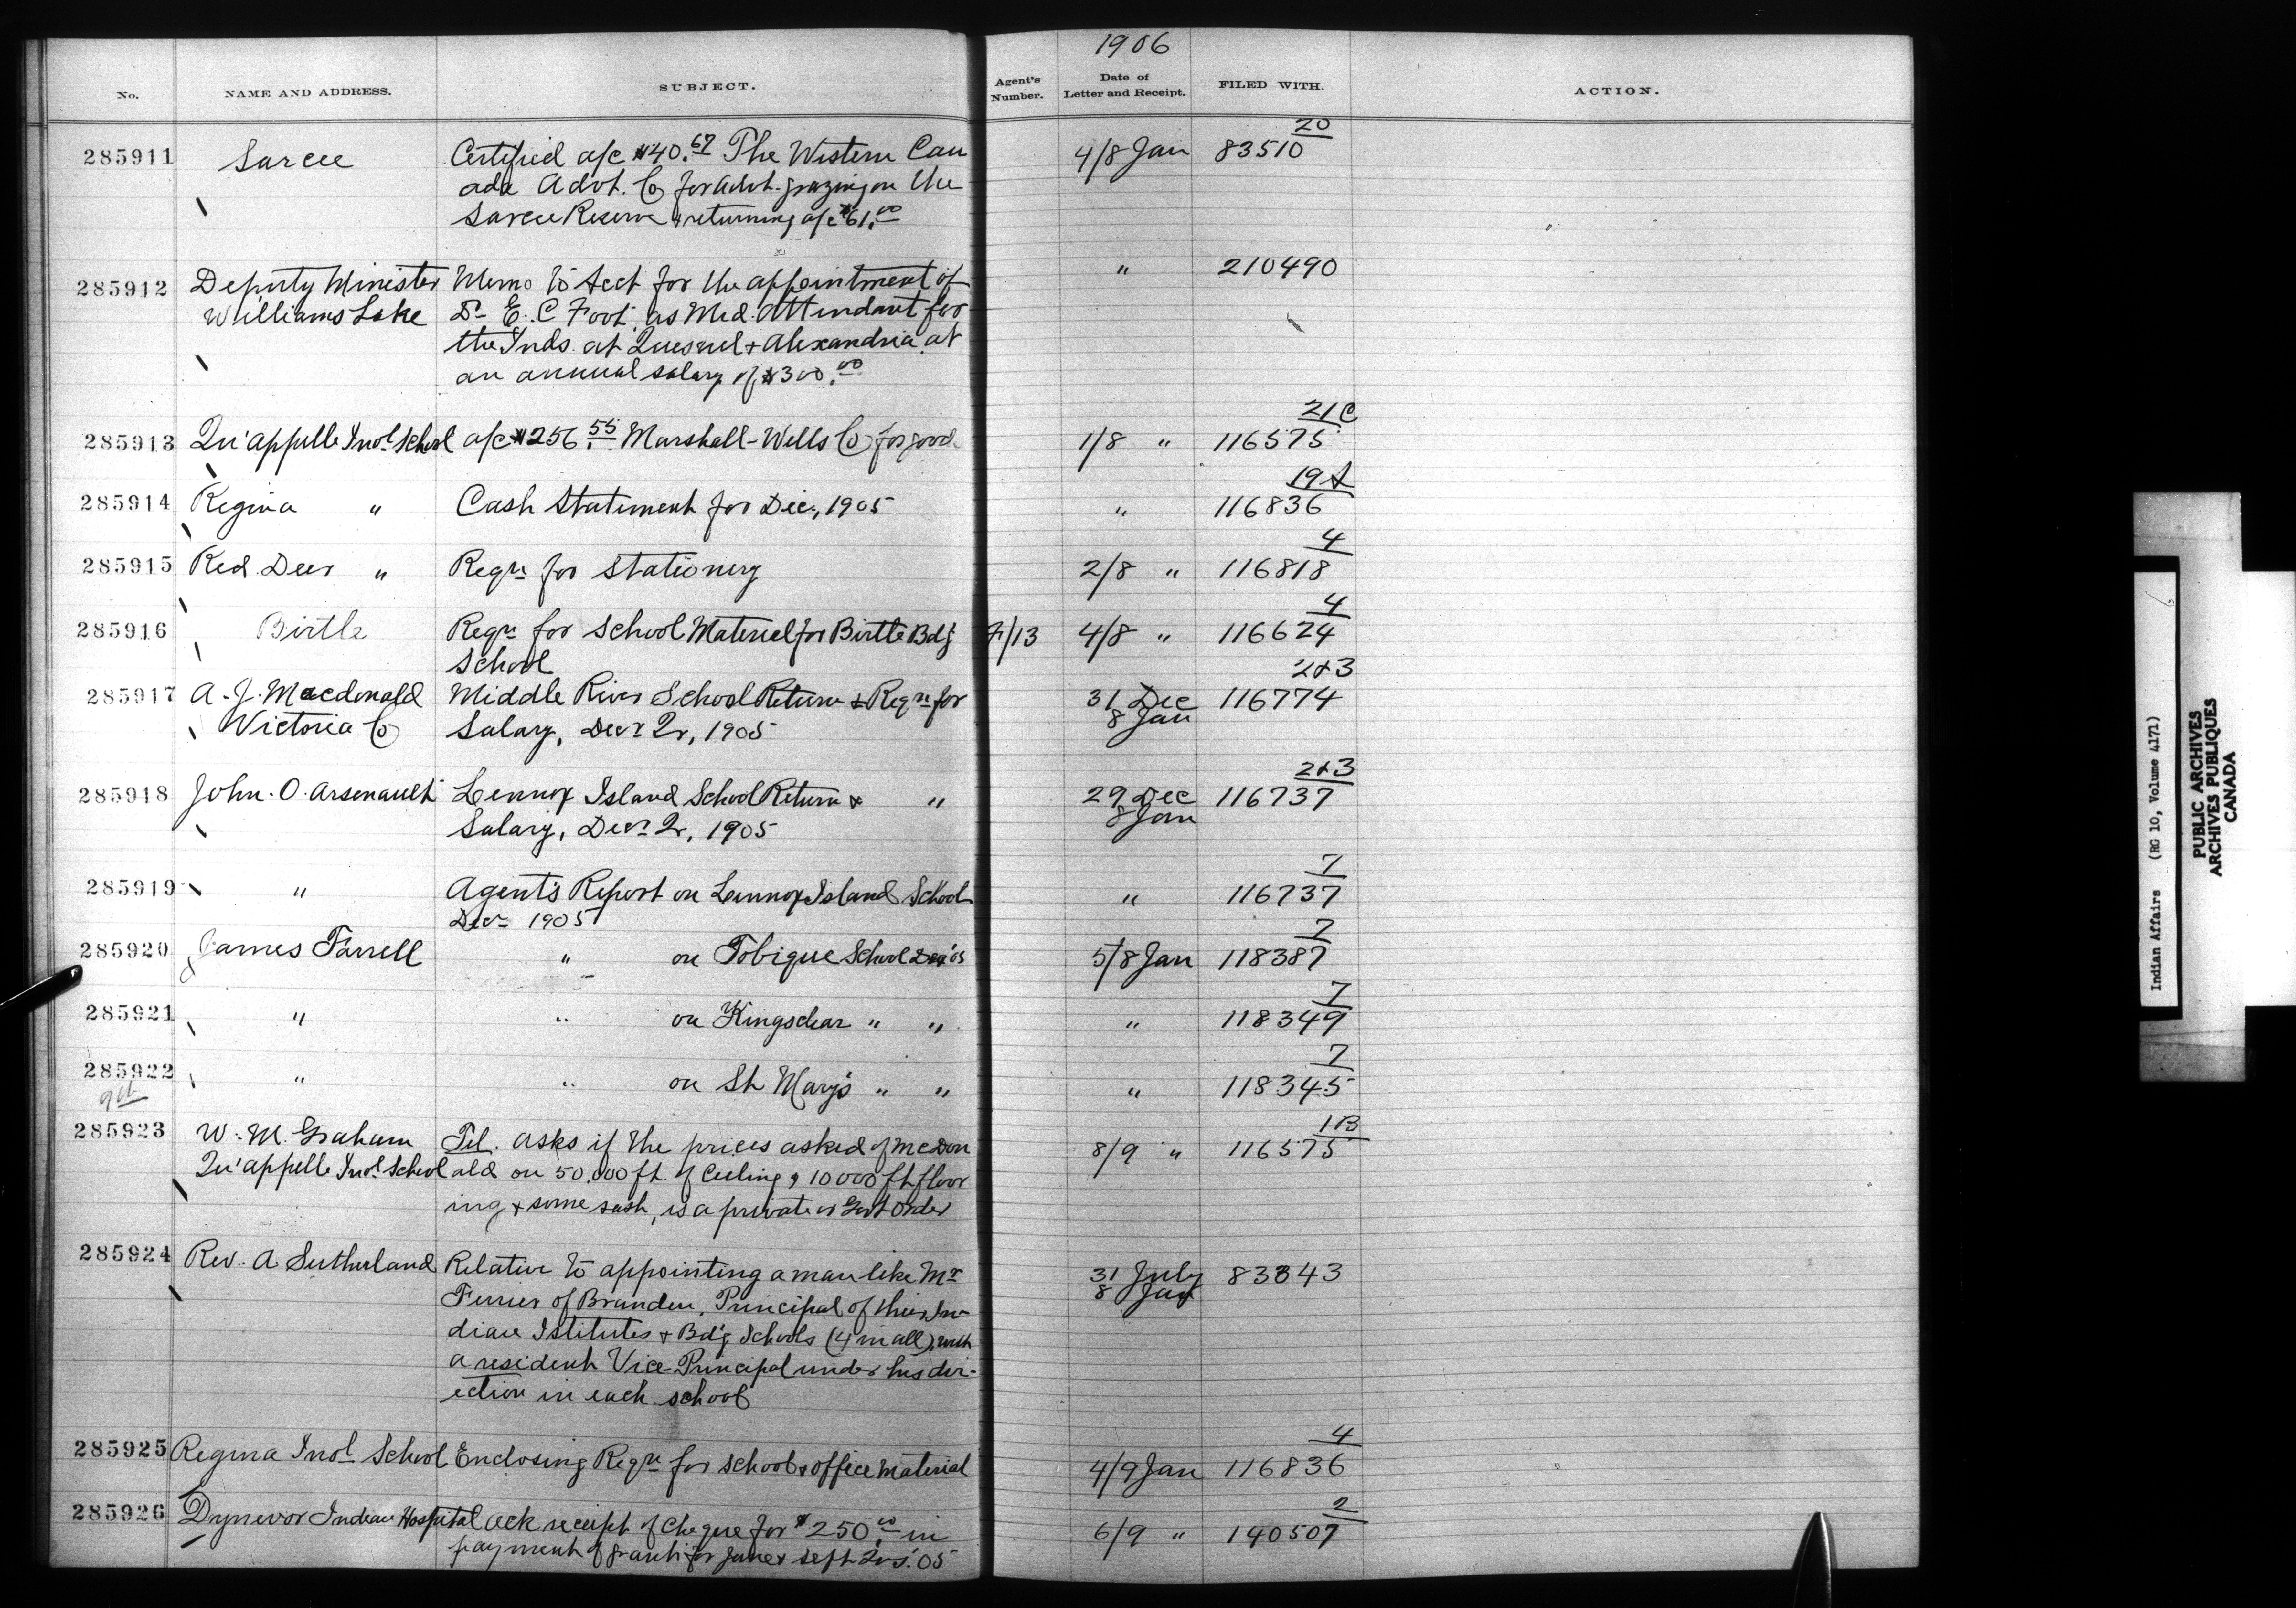 1906
No. NAME AND ADDRESS. SUBJECT. Agent's Number. Date of Letter and Receipt. FILED WITH. ACTION.
20
285911 Sarcee Certified a/c $40.67 The Western Can 4/8 Jan 83510
ada Advt. Co for advt. grazing on the
Sarcee Reserve & returning a/c $61.00
285912 Deputy Minister Memo to for the appointment of " 210490
Williams Lake Dr E. C Foot, as Med. Attendant for
the Inds. at Quesnel & Alexandria at
an annual salary of $300.00
21C
285913 Qu'appelle Indl School a/c $256.55 Marshall-Wells Co for goods 1/8 " 116575
19A
285914 Regina " Cash Statement for Dec., 1905 " 116836
4
285915 Red Deer " Reqn for Stationery 2/8 " 116818
4
285916 Birtle Reqn for School Material for Birtle Bdg 7/13 4/8 " 116624
School
2&3
285917 A. J. Macdonald Middle River School Return & Reqn for 31 Dec 116774
8 Jan
Victoria Co Salary, Decr Qr, 1905
2&3
285918 John. O. Arsenault Lennox Island School Return & " 29 Dec 116737
8 Jan
Salary, Decr Qr, 1905
7
285919 " Agent's Report on Lennox Island School " 116737
Decr 1905
7
285920 James Farrell " on Tobique School Dec '05 5/8 Jan 118387
7
285921 " " on Kingsclear " " " 118349
7
285922 " " on St Mary's " " " 118345
9th
1B
285923 W. M. Graham Tel. asks if the prices asked of McDon 8/9 " 116575
Qu'appelle Indl School ald on 50,000 ft. of Ceiling, 10000 ft floor
ing & some sash, is a private or Govt Order
285924 Rev. A Sutherland Relative to appointing a man like Mr 31 July 83343
8 Jan
Ferrier of Brandon, Principal of their In-
dian Istitutes & Bdg Schools (4 in all), with
a resident Vice-Principal under his dir-
ection in each school
4
285925 Regina Indl School Enclosing Reqn for school & office material 4/9 Jan 116836
2
285926 Dynevor Indian Hospital Ack receipt of cheque for $250.00 in 6/9 " 140507
payment of grant for June & Sept Qrs. '05
Indian Affairs (RG 10, Volume 4171)
PUBLIC ARCHIVES
ARCHIVES PUBLIQUES
CANADA